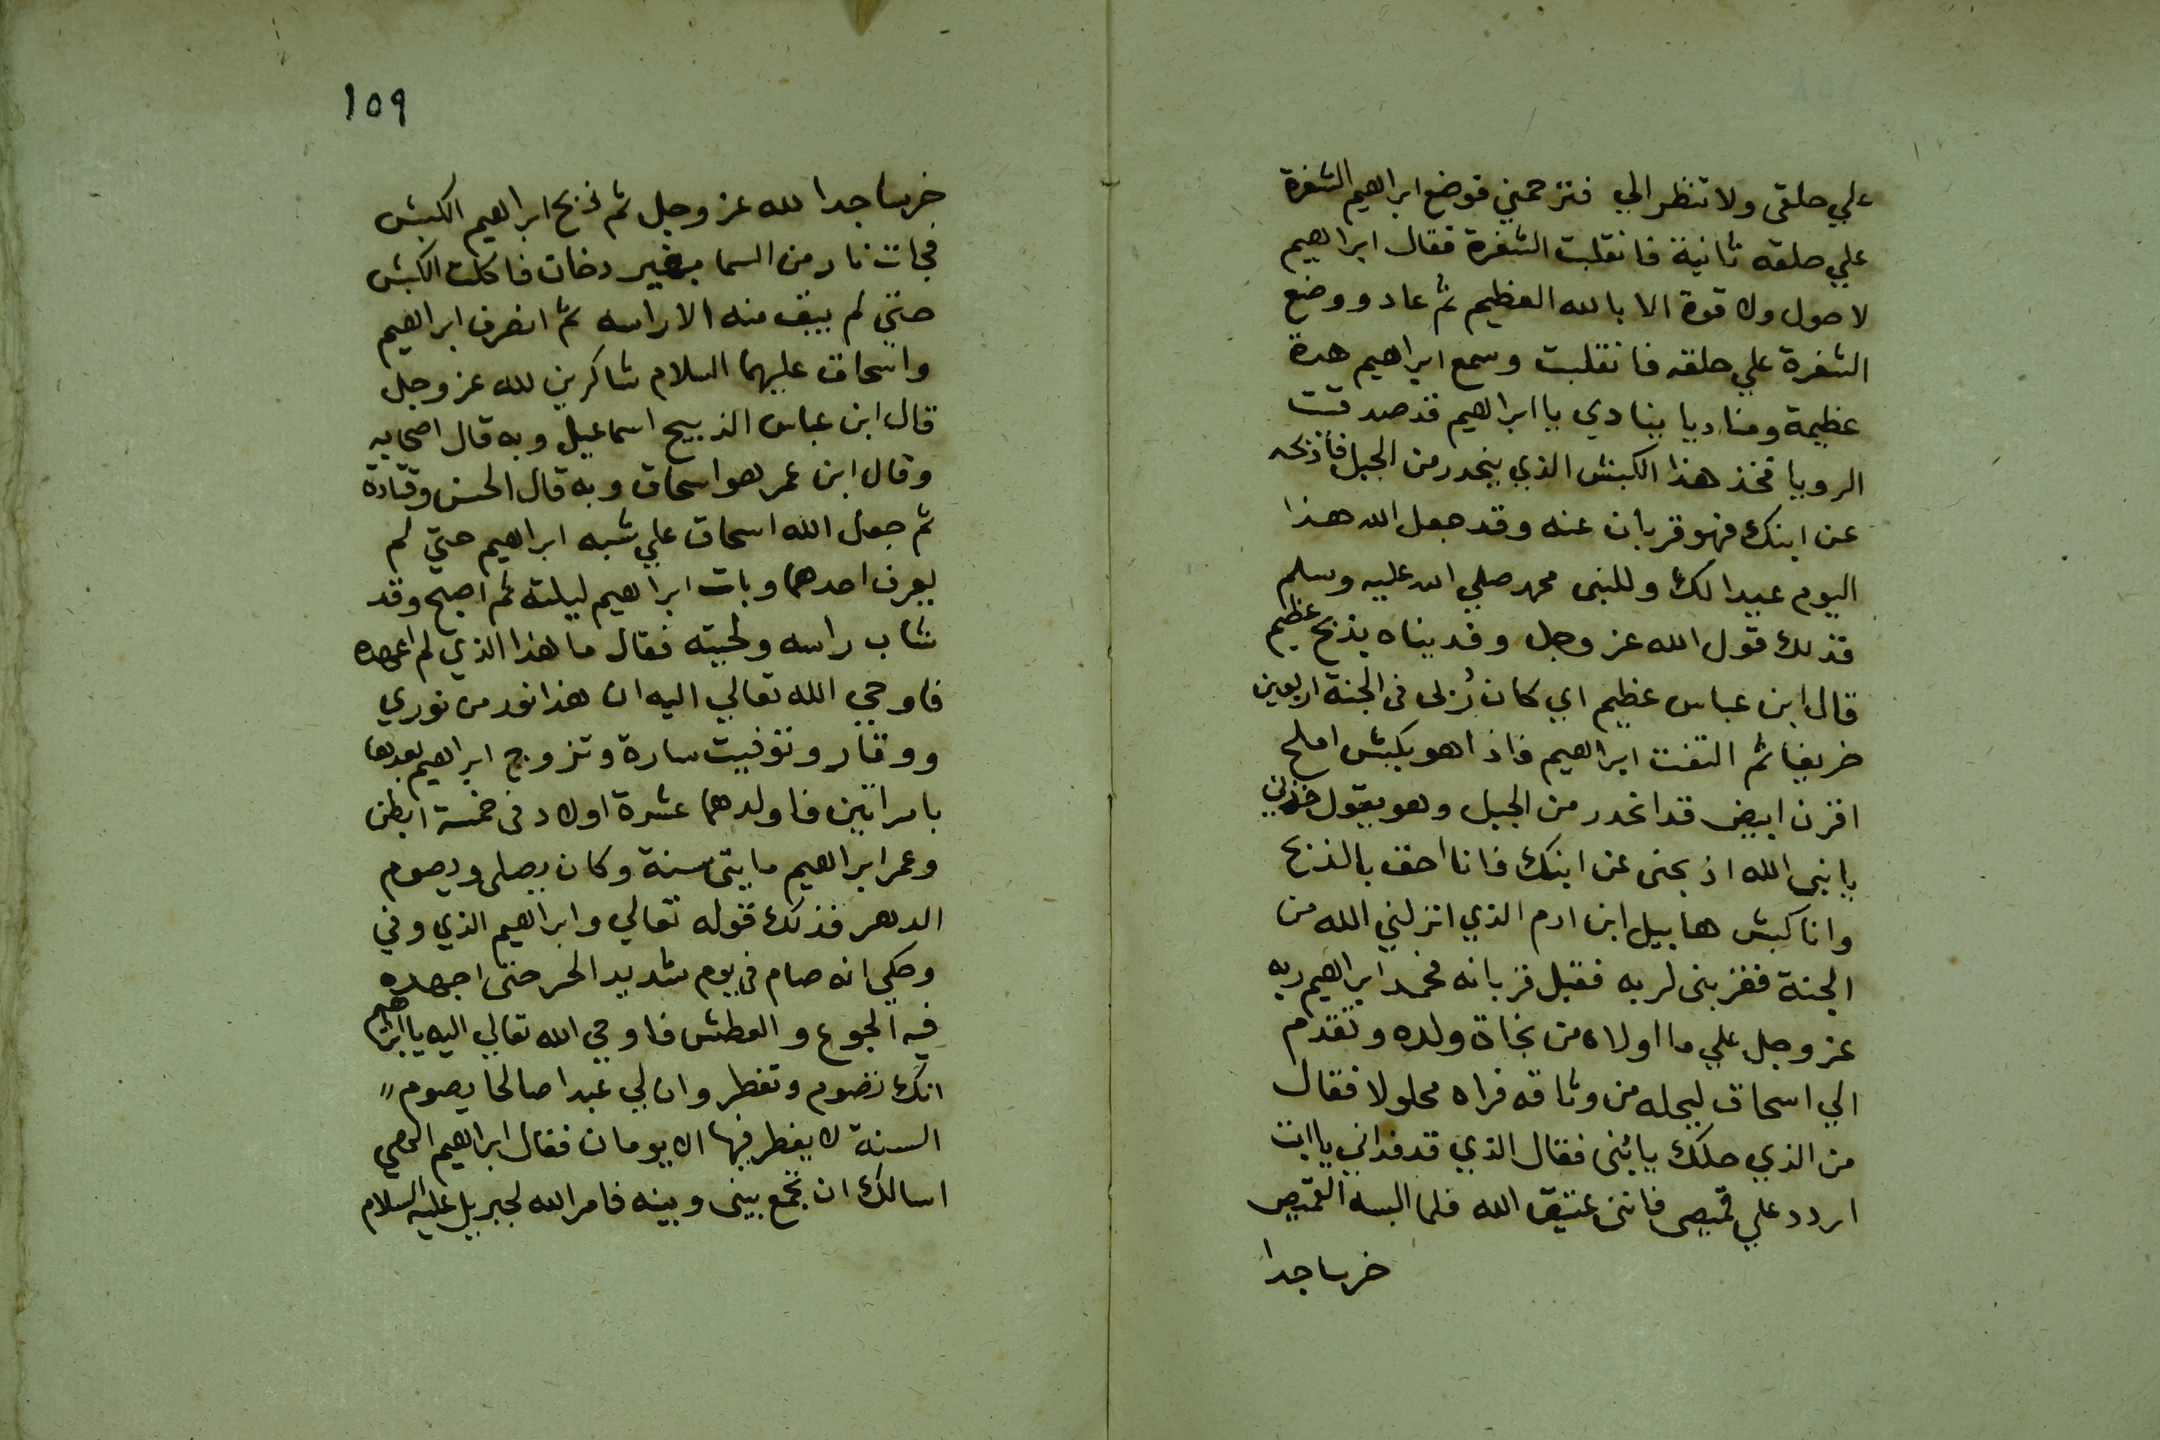 علي حلقى ولا تنظر الي فترحمني فوضع ابراهيم الشفرة
علي حلقه ثانية فانقلبت الشفرة فقال ابراهيم
لا حول ولا قوة الا بالله العظيم ثم عاد ووضع
الشفرة علي حلقه فانقلبت وسمع ابراهيم هدة
عظيمة ومناديا ينادي يا ابراهيم قد صدقت
الرويا فخذ هذا الكبش الذي ينحدر من الجبل فاذبحه
عن ابنك فهو قربان عنه وقد جعل الله هذا
اليوم عيدا لك وللنبى محمد صلي الله عليه وسلم
فذلك قول الله عز وجل وفديناه بذبح عظيم
قال ابن عباس عظيم اي كان رُبى فى الجنة اربعين
خريفا ثم التفت ابراهيم فاذا هو بكبش املح
اقرن ابيض قد انحدر من الجبل وهو يقول خذني
يا نبى الله اذبحنى عن ابنك فانا احق بالذبح
وانا كبش هابيل ابن ادم الذي انزلني الله من
الجنة فقربنى لربه فقبل قربانه فحمد ابراهيم ربه
عز وجل علي ما اولاه من نجاة ولده وتقدم
الي اسحاق ليحله من وثاقه فراه محلولا فقال
من الذي حلك يا بُنى فقال الذي قد فداني يا ابت
اردد علي قميصى فاننى عتيق الله فلما البسه القميص
خر ساجدا
١٥٩
خر ساجدا لله عز وجل ثم ذبح ابراهيم الكبش
فجات نار من السما بغير دخان فاكلت الكبش
حتي لم يبق منه الا راسه ثم انصرف ابراهيم
واسحاق عليهما السلام شاكرين لله عز وجل
قال ابن عباس الذبيح اسماعيل وبه قال اصحابه
وقال ابن عمر هو اسحاق وبه قال الحسن وقتادة
ثم جعل الله اسحاق علي شبه ابراهيم حتي لم
يعرف احدهما وبات ابراهيم ليلته ثم اصبح وقد
شاب راسه ولحيته فقال ما هذا الذي لم اعهده
فاوحي الله تعالي اليه ان هذا نور من نوري
ووقار وتوفيت سارة وتزوج ابراهيم بعدها
بامراتين فاولدهما عشرة اولاد فى خمسة ابطن
وعمر ابراهيم مايتى سنة وكان يصلى ويصوم
الدهر فذلك قوله تعالي وابراهيم الذي وفي
وحكي انه صام فى يوم شديد الحر حتى اجهده
فيه الجوع والعطش فاوحي الله تعالي اليه يا ابراهيم
انك تصوم وتفطر وان لي عبدا صالحا يصوم
السنة لا يفطر فيها الا يومان فقال ابراهيم الهي
اسالك ان تجمع بينى وبينه فامر الله لجبريل عليه السلام